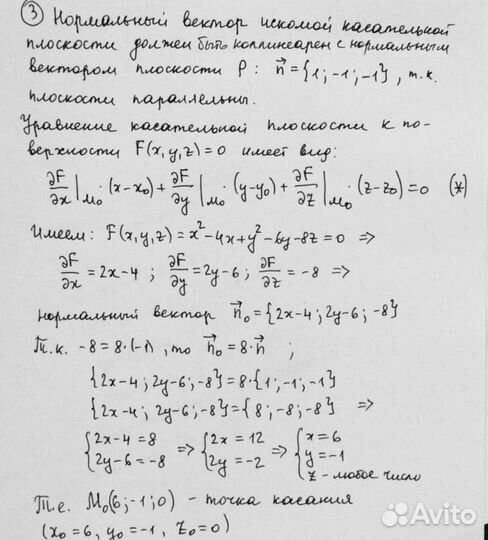 ③ Нормальный вектор искомой касательной
плоскости должен быть коллинеарен с нормальным
вектором плоскости P: n⃗ = {1; -1; -1}, т.к.
плоскости параллельны.
Уравнение касательной плоскости к по-
верхности F(x,y,z)=0 имеет вид:
∂F/∂x|M₀ · (x-x₀) + ∂F/∂y|M₀ · (y-y₀) + ∂F/∂z|M₀ · (z-z₀) = 0 (*)
Имеем: F(x,y,z) = x² - 4x + y² - 6y - 8z = 0 =>
∂F/∂x = 2x-4 ; ∂F/∂y = 2y-6 ; ∂F/∂z = -8 =>
нормальный вектор n⃗₀ = {2x-4; 2y-6; -8}
Т.к. -8 = 8·(-1), то n⃗₀ = 8·n⃗ ;
{2x-4; 2y-6; -8} = 8·{1; -1; -1}
{2x-4; 2y-6; -8} = {8; -8; -8} =>
{2x-4 = 8 => {2x = 12 => {x = 6
2y-6 = -8 2y = -2 y = -1
z - любое число
Т.е. M₀(6; -1; 0) - точка касания
(x₀ = 6, y₀ = -1, z₀ = 0)
Avito